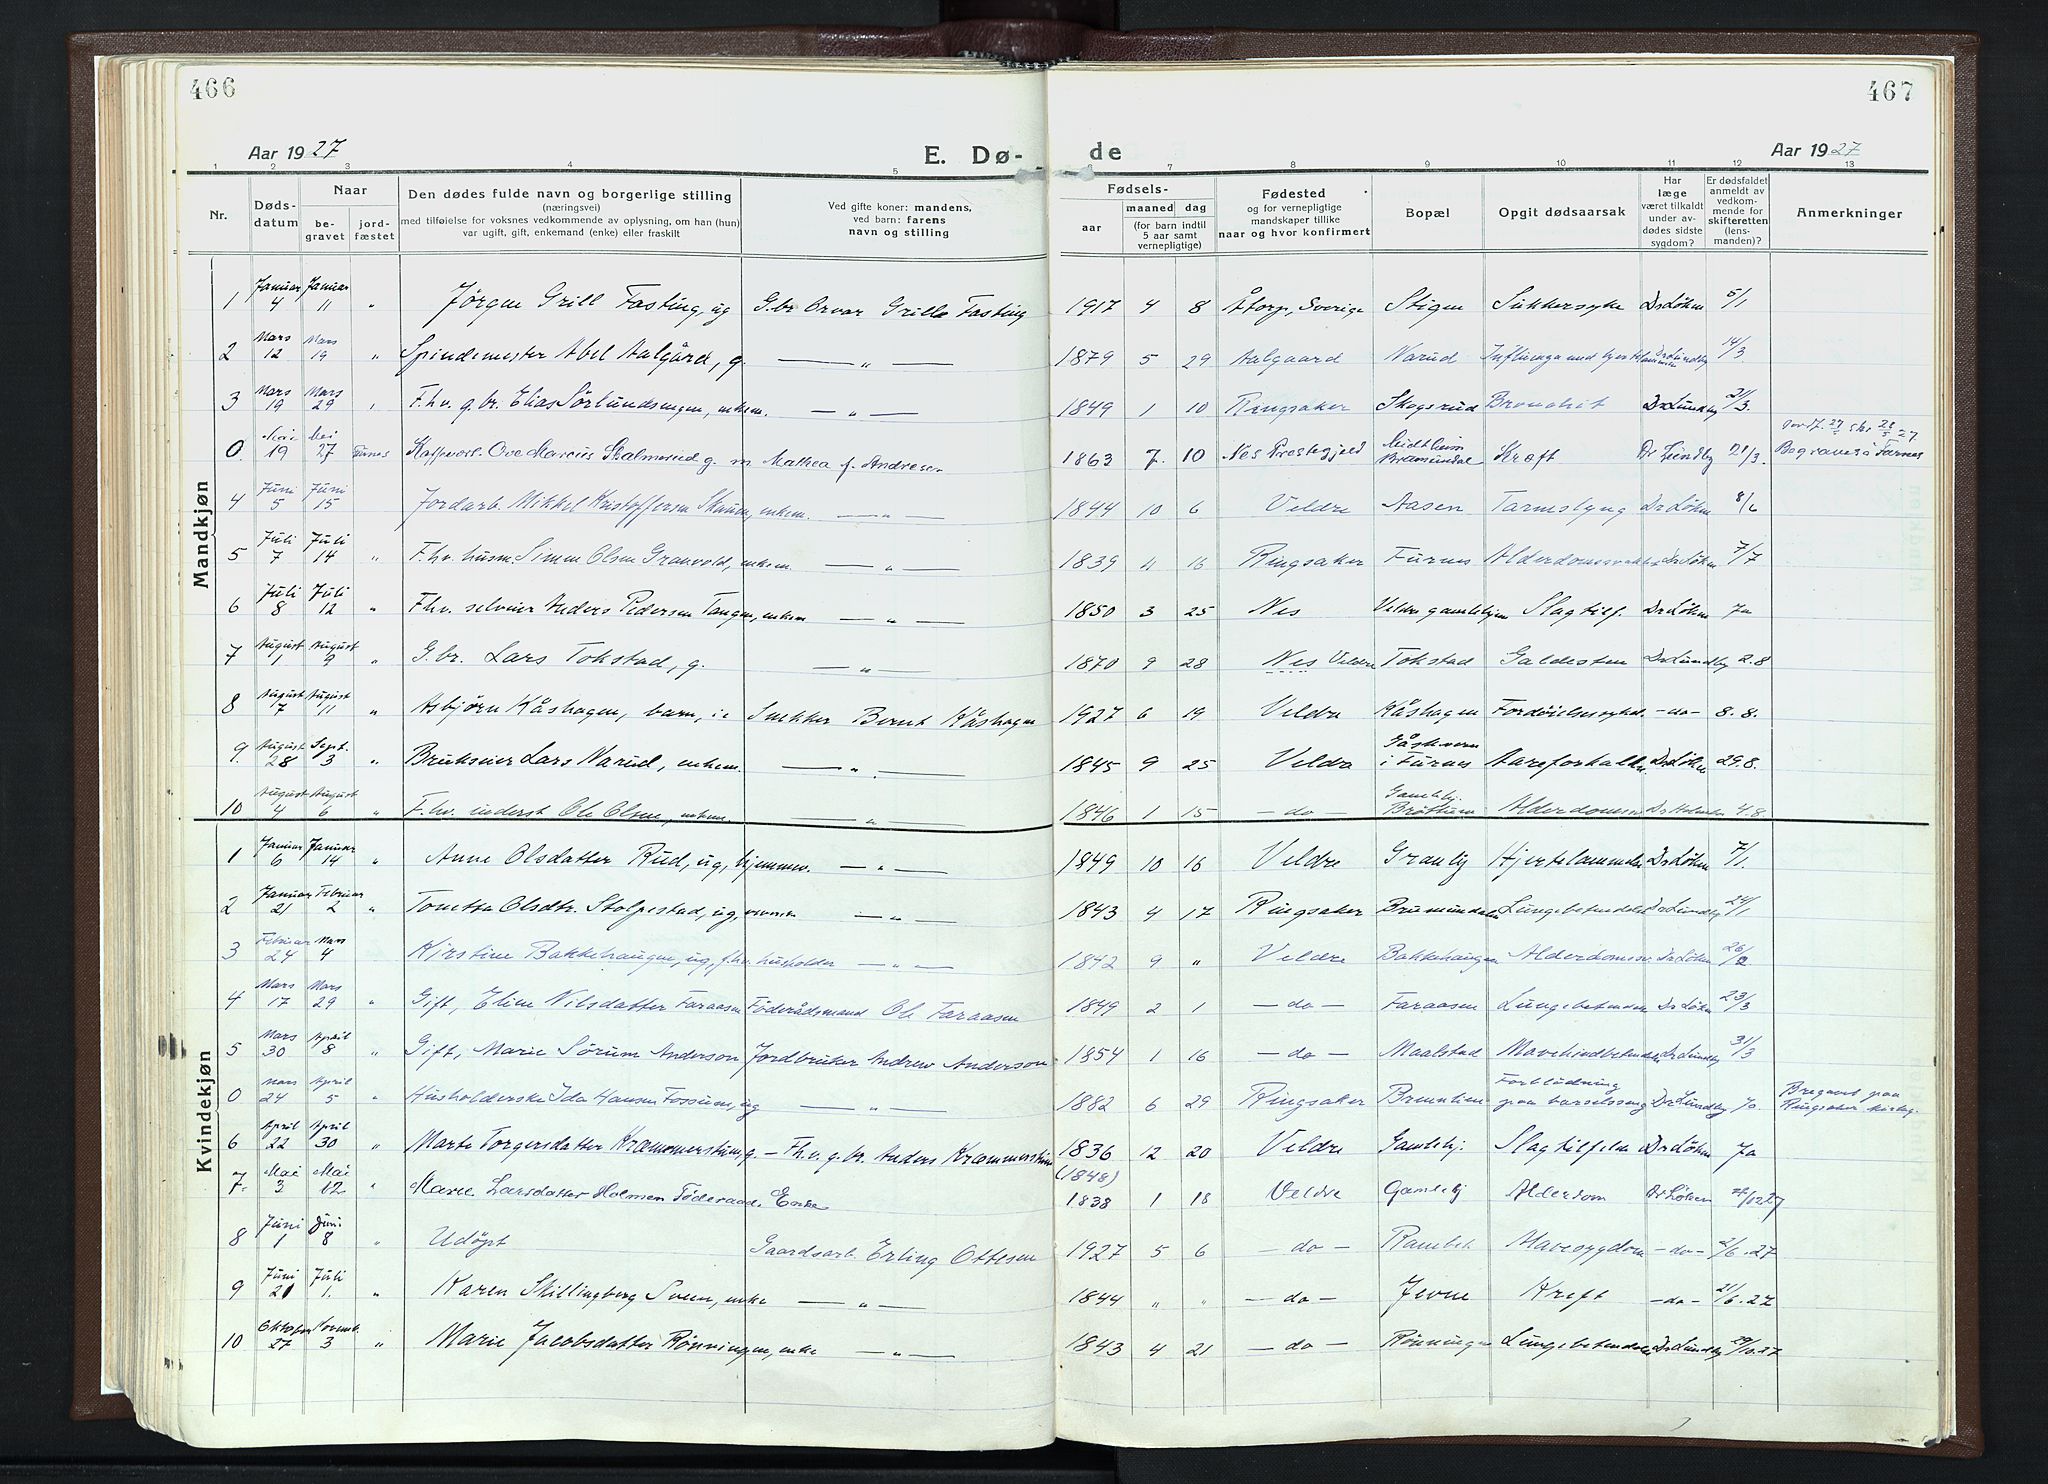 466
467
Aar 1927
E. Dø-
de
Aar 1927
1 2 3 4 5 6 7 8 9 10 11 12 13
Nr.
Døds-
datum
Naar
be-
gravet
jord-
fæstet
Den dødes fulde navn og borgerlige stilling
(næringsvei)
med tilføielse for voksnes vedkommende av oplysning, om han (hun)
var ugift, gift, enkemand (enke) eller fraskilt
Ved gifte koner: mandens,
ved barn: farens
navn og stilling
Fødsels-
aar
maaned
dag
(for barn indtil
5 aar samt
vernepligtige)
Fødested
og for vernepligtige
mandskaper tillike
naar og hvor konfirmert
Bopæl
Opgit dødsaarsak
Har
læge
været tilkaldt
under av-
dødes sidste
sygdom?
Er dødsfaldet
anmeldt av
vedkom-
mende for
skifteretten
(lens-
manden)?
Anmerkninger
Mandkjøn
1 Januar 4 Januar 11 " Jørgen Grill Fasting, ug G.br. Orvar Grille Fasting 1917 4 8 Åtorp, Sverige Stigen Sukkersyke Dr Løken 5/1
2 Mars 12 Mars 19 " Spindemester Abel Aalgård, g. — " — 1879 5 29 Aalgaard Narud Influenza med Dr Lundby 14/3
3 Mars 19 Mars 29 " F.hv. g.br. Elias Sørlundsengen, enkem. — " — 1849 1 10 Ringsaker Skogsrud Bronchit Dr Lundby 21/3.
0. Mai 19 Mai 27 Furnes Ove Marcus Skalmerud g. m Mathea f. Andresen 1863 7. 10 Nes Prestegjeld Kræft Dr Lundby 21/3. Begravet i Furnes
4 Juni 5 Juni 15 Jordarb. Mikkel Kristoffersen Skauen, enkem. — " — 1844 10 6 Veldre Aasen Tarmslyng Dr Løken 8/6
5 Juli 7 Juli 14 " F.hv. husm. Simen Olsen Granvold, enkem. — " — 1839 4 16 Ringsaker Furnes Dr Løken 7/7
6 Juli 8 Juli 12 " F.hv. selveier Anders Pedersen Tangen, enkem — " — 1850 3 25 Nes Veldre gamlehjem Slagtilf. Dr Løken Ja
7 August 1 August 9 " G.br. Lars Tokstad, g. — " — 1870 9 28 Nes Veldre Tokstad Galdesten Dr Lundby 2.8
8 August 7 August 11 " Asbjørn Kåshagen, barn, ie Snekker Bernt Kåshagen 1927 6 19 Veldre Kåshagen Fordøielsessykd. -do- 8.8.
9. August 28 Sept. 3 " Brukseier Lars Narud, enkem. — " — 1845 9 25 Veldre i Furnes Dr Løken 29.8.
10 August 4 August 6 " F.hv. inderst Ole Olsen, enkem. — " — 1846 1 15 -do- Gamlehj. Brøttum 4.8.
Kvindekjøn
1 Januar 6 Januar 14 " Anne Olsdatter Rud, ug, hjemmev. — " — 1849 10 16 Veldre Granlig Hjertelammelse Dr Løken 7/1.
2 Januar 21 Februar 2 " Tonetta Olsdtr. Stolpestad, ug, — " — 1843 4 17 Ringsaker Brumunddalen Lungebetendelse Dr Lundby 24/1
3 Februar 24 Mars 4 Kirstine Bakkehaugen, ug, f.hv. husholder — " — 1842 9 " Veldre Bakkehaugen Alderdomssv. Dr Løken 26/2
4 Mars 17 Mars 29 " Gift, Eline Nilsdatter Faraasen Föderådsmand Ole Faraasen 1849 2 1 -do- Faraasen Lungebetendelse Dr Løken 23/3
5 Mars 30 April 8 " Gift, Marie Sørum Anderson Jordbruker Andrew Anderson 1854 1 16 -do- Maalstad Mavehindbetendelse Dr Lundby 31/3
0 Mars 24 April 5 " Husholderske Ida Hansen Fossum, ug — " — 1882 6 29 Ringsaker Forblödning paa barselseng Dr Lundby Begravet paa Ringsaker kirkeg.
6 April 22 April 30 " Marte Torgersdatter Kræmmerstuen, g. — F.hv. g.br. Anders Kræmmerstuen 1836 12 20 Veldre Gamlehj. Slagtilfelde Dr Løken Ja
7. Mai 3 Mai 12 " Marie Larsdatter Holmen Föderaad. Enke (1848) 1838 1 18 Veldre Gamlehj Alderdom Dr Løken
8 Juni 1 Juni 8 " Udöpt Gaardsarb. Erling Ottesen 1927 5 6 -do- Mavesygdom -do- 2/6.27
9 Juni 21 Juli 1. " Karen Skillingberg Sveen, enke — " — 1844 " " -do- Jevne Kreft -do- 21/6.27
10 Oktober 27 Novemb. 3 " Marie Jacobsdatter Rønningen, enke — " — 1843 4 21 -do- Rønningen Lungebetendelse Dr Lundby 29/10.27